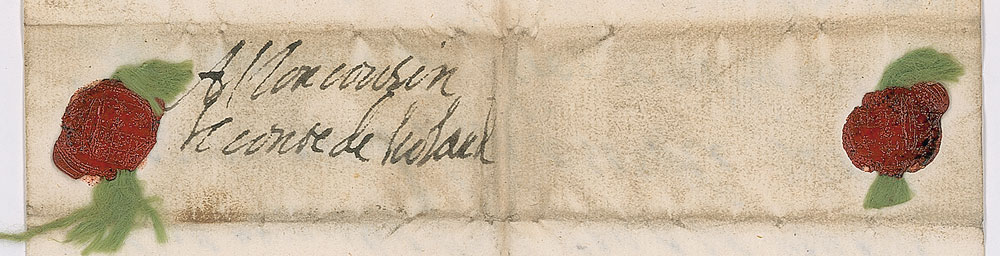 A Mon cousin
le conte de holand